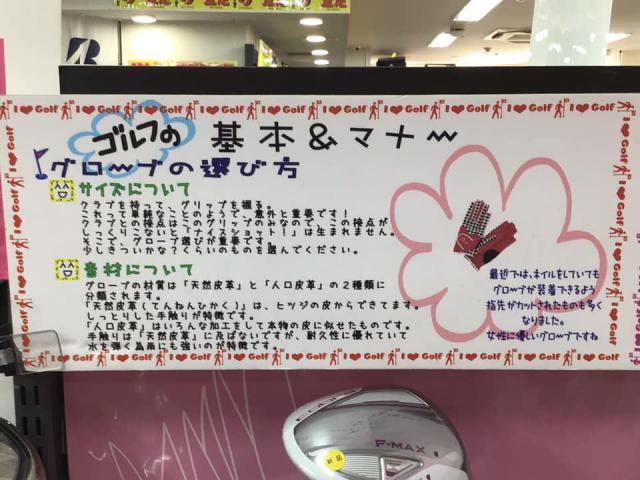 I ❤ Golf I ❤ Golf I ❤ Golf I ❤ Golf I ❤ Golf I ❤ Golf
ゴルフの 基本&マナー
グローブの選び方
サイズについて
クラブを持って、グリップを握る。
これって単純なことのようで、意外と重要です！
クラブとの接点はこのグリップのみなので、この接点が
しっくりこないと「ナイスショット！」は生まれません。
そこで、グローブ選びが重要です。
少しきついかな？くらいのものを選んでください。
素材について
グローブの材質は「天然皮革」と「人口皮革」の２種類に
分類されます。
「天然皮革(てんねんひかく)」は、ヒツジの皮からできてます。
しっとりした手触りが特徴です。
「人口皮革」はいろんな加工をして本物の皮に似せたものです。
手触りは「天然皮革」に及ばないですが、耐久性に優れていて
水を弾く為雨にも強いのが特徴です。
最近では、ネイルをしていても
グローブが装着できるよう
指先がカットされたものも多く
なりました。
女性に優しいグローブですね
I ❤ Golf I ❤ Golf I ❤ Golf I ❤ Golf I ❤ Golf I ❤ Golf
F-MAX